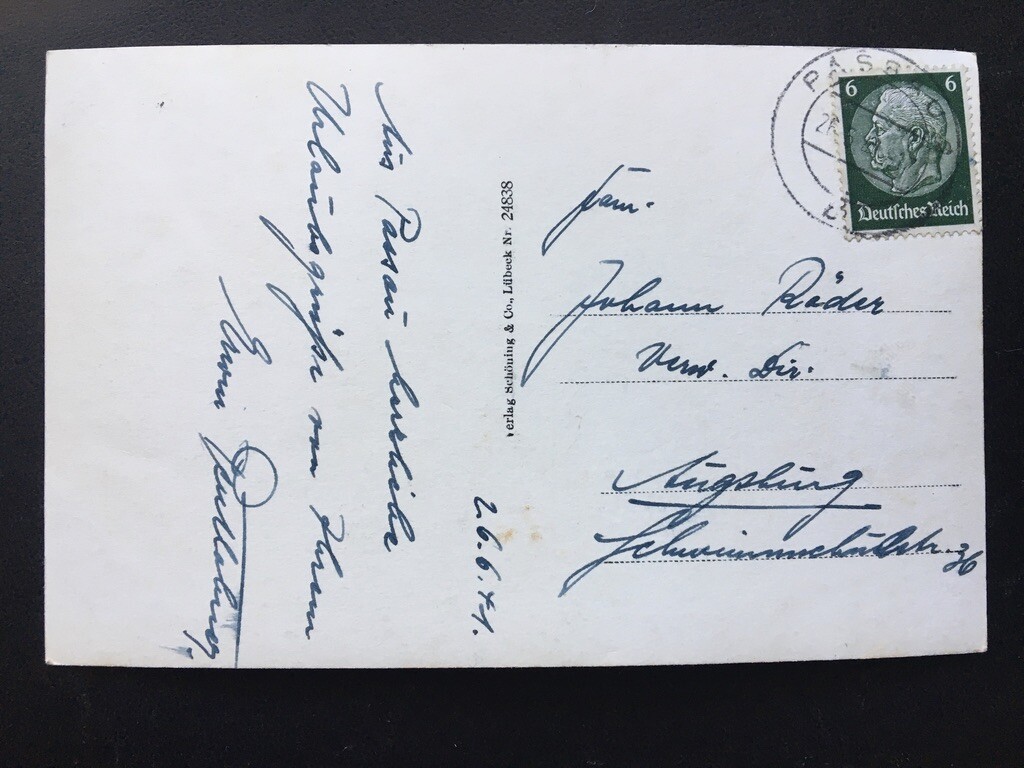 26.6.41.
Aus Passau herzliche
Urlaubsgrüße von Ihrem
Erwin
Verlag Schöning & Co., Lübeck Nr. 24838
PASSAU
6 6
Deutsches Reich
Fam.
Johann Röder
Verw. Dir.
Augsburg
Schwimmschulstr. 36